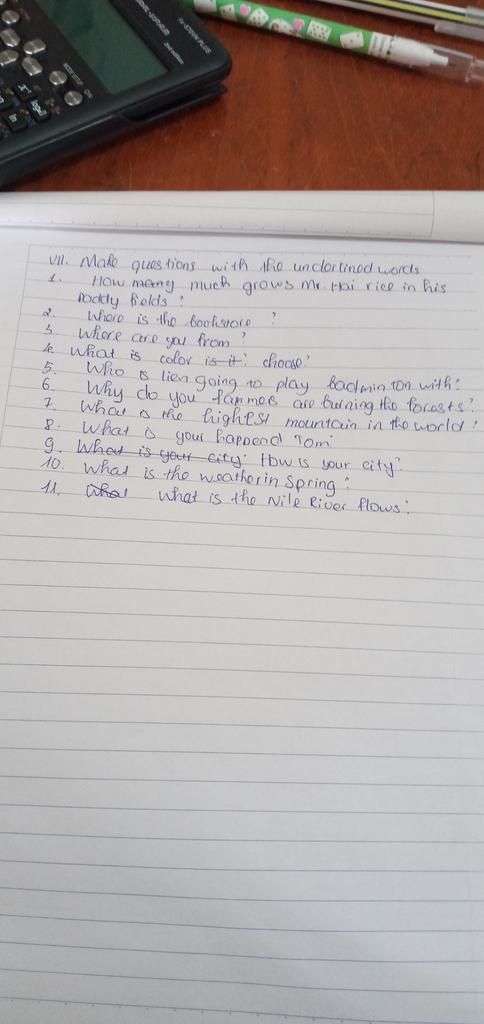 VII. Make questions with the underlined words
1. How many much grows Mr. Hai rice in his
paddy fields?
2. Where is the bookstore?
3. Where are you from?
4. What is color is it? choose?
5. Who is lien going to play badminton with?
6. Why do you farmers are burning the forests?
7. What is the highest mountain in the world?
8. What is your happend Tom?
9. What is your city? How is your city?
10. What is the weather in Spring?
11. What What is the Nile River flows?